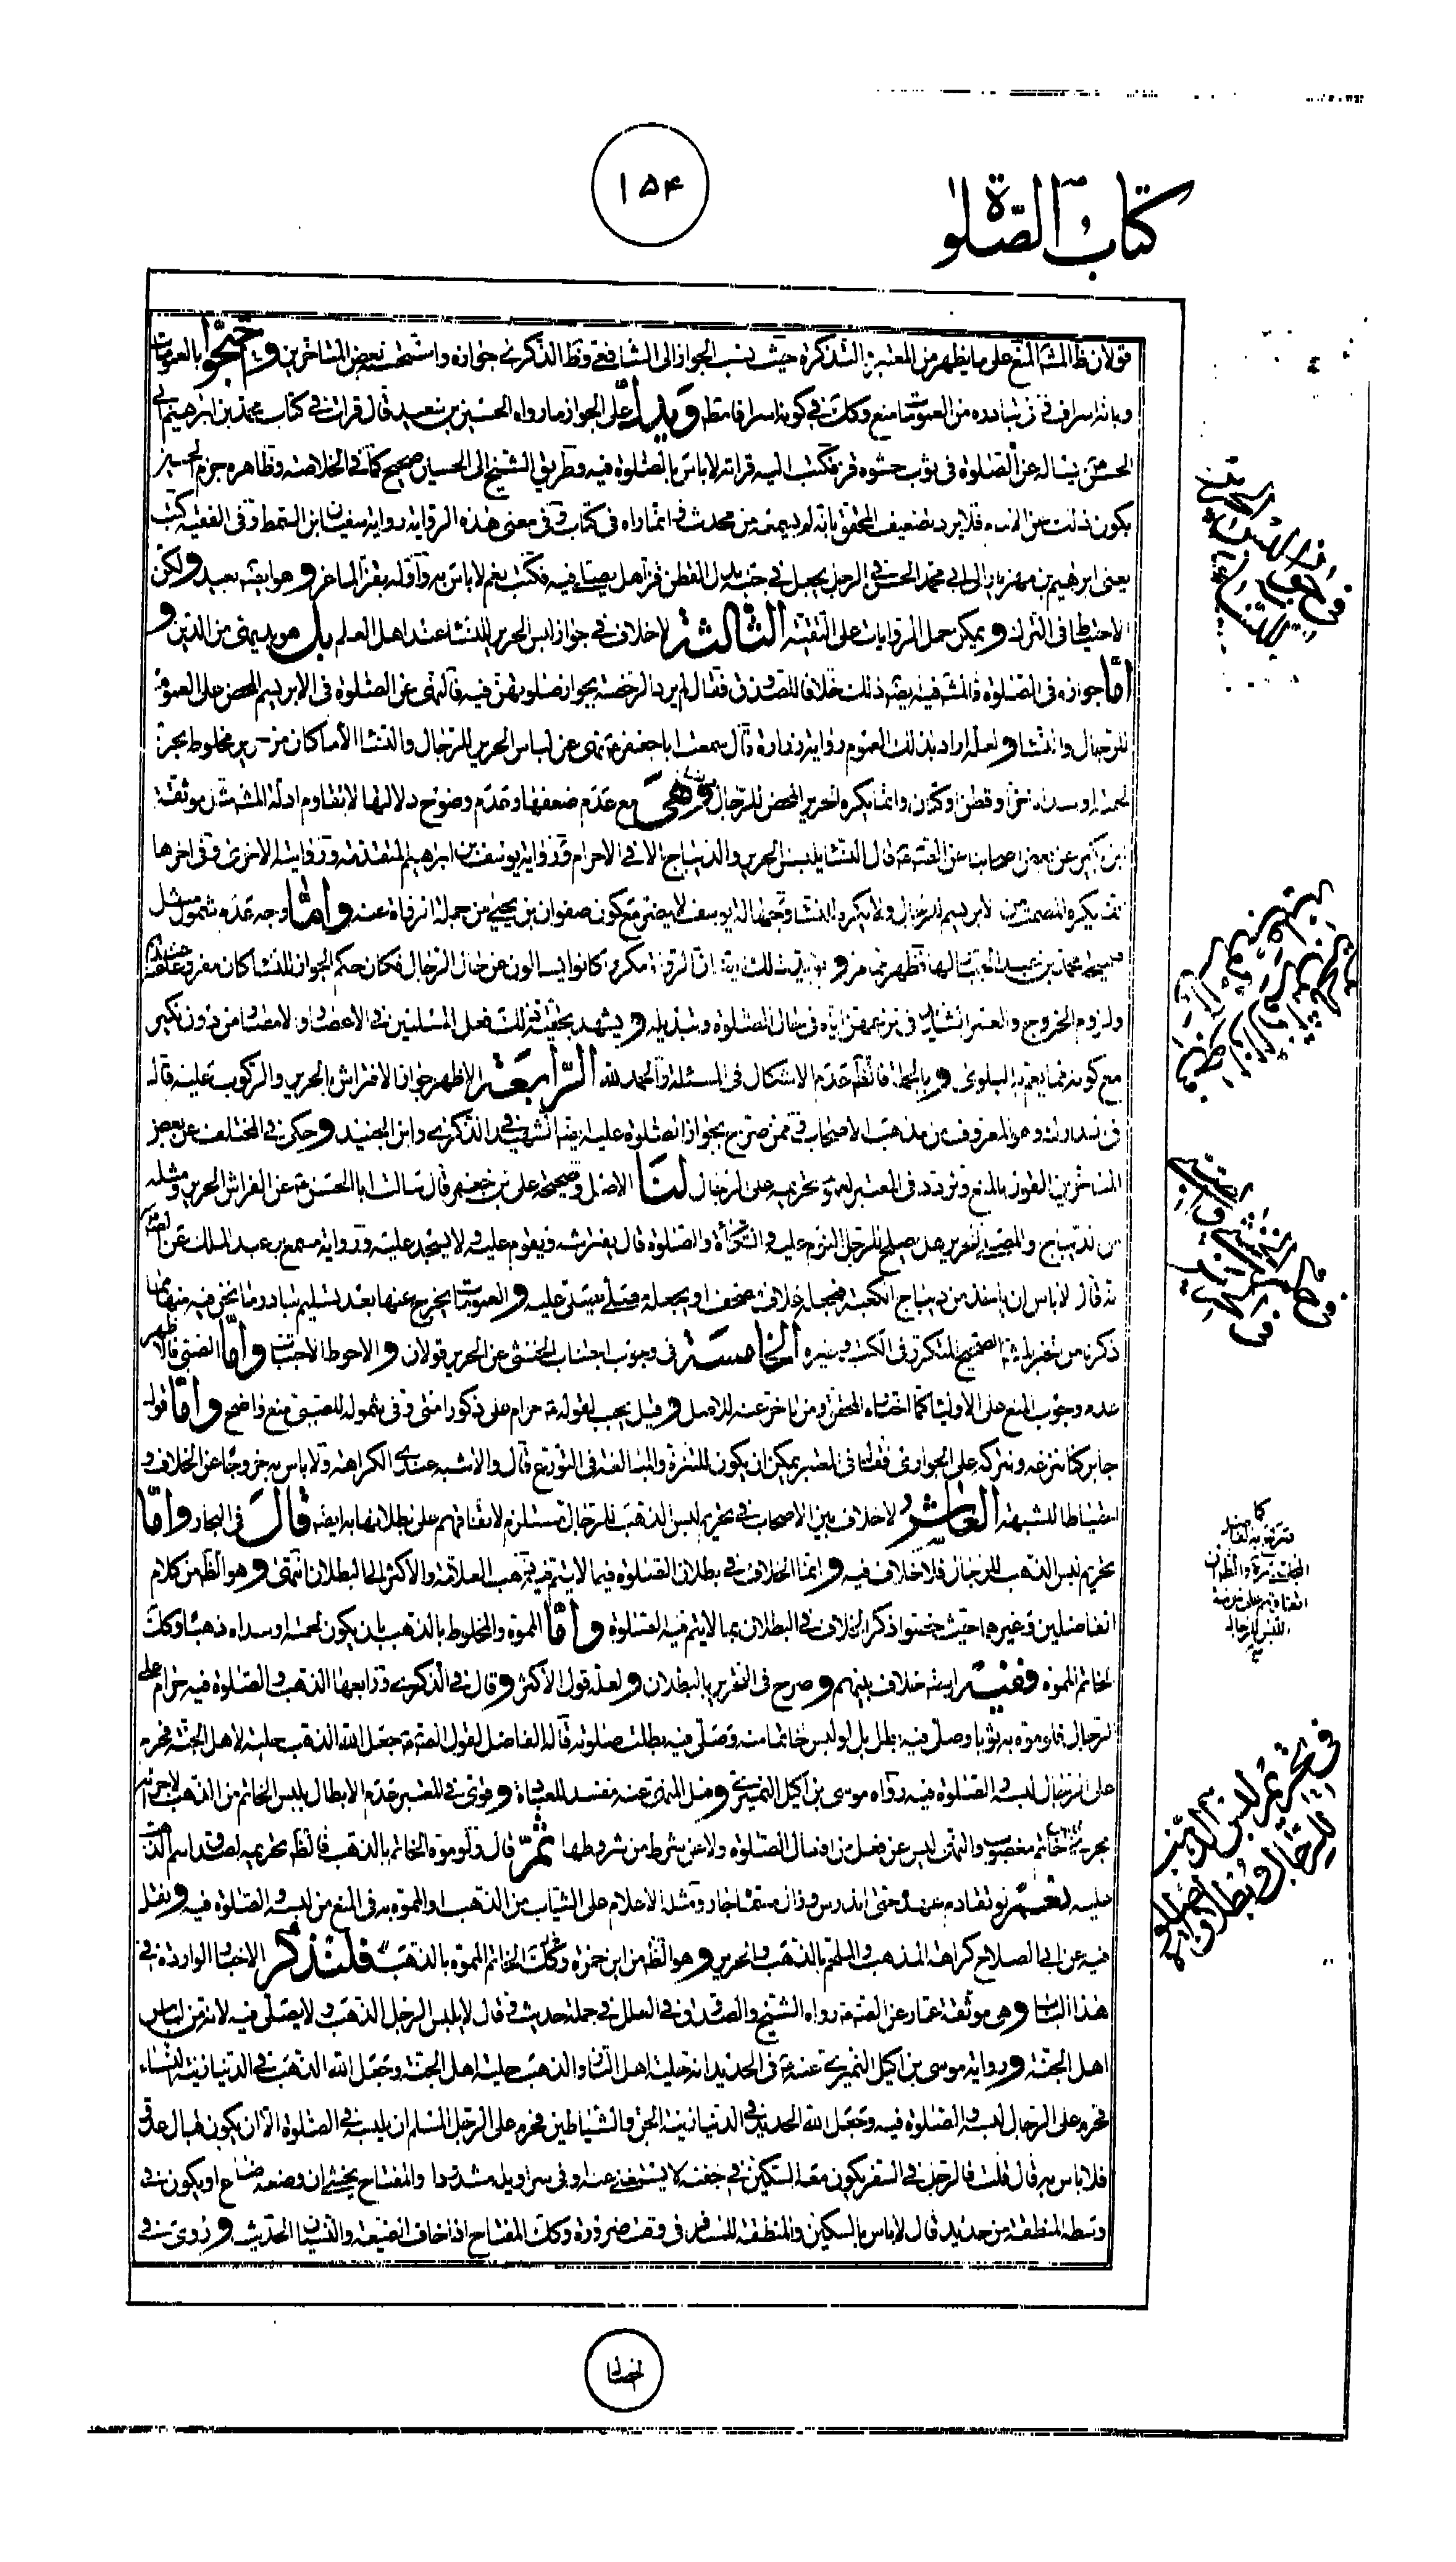 كتاب الصلوة
١٥۴
قولان ظ المش المنع على ما يظهر من المعتبر التذكرة حيث نسب الجواز الى الشافعي وظ الذكرى جوازه واستحسنه بعض المتاخرين واحتجوا بالعمومات
وبانه اسراف وفى تبادره من العمومات منع وكك فى كونه اسرافا مطلقا ويدل على الجواز ما رواه الحسين بن سعيد قال قرات فى كتاب محمد بن ابرهيم الى
يساله عن الصلوة فى ثوب حشوه قز فكتب اليه قراته لا باس بالصلوة فيه وطريق الشيخ الى الحسين صحيح كما فى الخلاصة وظاهره جزم الحسين
بكون ذلك عن الامام فلا يرد تضعيف المحقق بانه لم يسمعه من محدث وانما راه فى كتاب وفى معنى هذه الرواية رواية سفيان ابن السمط وفى الفقيه كتب
يعنى ابرهيم بن مهزيار الى ابى محمد الحسن فى الرجل يجعل فى جبته بدل القطن قزا هل يصلى فيه فكتب نعم لا باس به واوله بقز الماعز وهو ايضا بعيد ولكن
الاحتياط فى الترك ويمكن حمل الروايات على التقية الثالثة لا خلاف فى جواز لبس الحرير للنساء عند اهل العلم بل هو بديهى من الدين و
اما جوازه فى الصلوة فالمش فيه ايضا ذلك خلافا للصدوق فقال لم يرد الرخصة بجواز صلوتهن فيه فالنهى عن الصلوة فى الابريسم المحض على العموم
للرجال والنساء ولعله اراد بذلك العموم رواية زرارة قال سمعت ابا جعفر ينهى عن لباس الحرير للرجال والنساء الا ما كان من حرير مخلوط بخز
لحمته او سداه خز او قطن او كتان وانما يكره الحرير المحض للرجال وهى مع عدم ضعفها وعدم وضوح دلالتها لا تقاوم ادلة المش مثل موثقة
ابن بكير عن بعض اصحابنا عن الصادق قال النساء يلبس الحرير والديباج الا فى الاحرام ورواية يوسف بن ابرهيم المتقدمة وروايته الاخرى وفى اخرها
يكره المصمت من الابريسم للرجال ولا يكره للنساء وجهالة يوسف لا يضر مع كون صفوان بن يحيى من جملة الرواة عنه واما وجه عدم شمول مثل
صحيحة محمد بن عبد الجبار لها فظهر مما مر ويؤيد ذلك ايضا ان الرواة مكررا كانوا يسالون عن حال الرجال فكان حكم الجواز للنساء كان مفروغا عنه عندهم
ولزوم الخروج والعسر الشديد فى نزعهن اياه فى حال الصلوة وتبديله ويشهد بحقيقة ذلك فعل المسلمين فى الاعصار والامصار من دون نكير
مع كونه مما يعم به البلوى وبالجملة فالظ عدم الاشكال فى المسئلة والحمد لله الرابعة الاظهر جواز الافتراش بالحرير والركوب عليه قال
فى المدارك وهو المعروف من مذهب الاصحاب وممن صرح بجواز الصلوة عليه ايضا الشهيد فى الذكرى وابن الجنيد وحكى فى المختلف عن بعض
المتاخرين القول بالمنع وتردد فى المعتبر لعموم تحريمه على الرجال لنا الاصل وصحيحة على بن جعفر قال سالت ابا الحسن عن الفراش الحرير ومثله
من الديباج والمصلى الحرير هل يصلح للرجل النوم عليه والتكأة والصلوة قال يفترشه ويقوم عليه ولا يسجد عليه ورواية مسمع بن عبد الملك عن الصادق
انه قال لا باس ان ياخذ من ديباج الكعبة فيجعله غلاف مصحف او يجعله مصلى يصلى عليه والعمومات يخرج عنها بعد تسليم تبادر ما نحن فيه منها بما
ذكرنا من الخبر الصحيح المتكرر فى الكتب وغيره الخامسة فى وجوب اجتناب الخنثى عن الحرير قولان والاحوط الاجتناب واما الصبى فالاظهر
عدم وجوب المنع على الاولياء كما اختاره المحقق ومن تاخر عنه للاصل وقيل يجب لقوله حرام على ذكور امتى وفى شموله للصبى منع واضح واما قول
جابر كنا ننزعه ونتركه على الجوارى فقال فى المعتبر يمكن ان يكون للتنزه والمبالغة فى التورع قال والاشبه عندى الكراهة ولا باس به خروجا عن الخلاف و
احتياطا للشبهة العاشر لا خلاف بين الاصحاب فى تحريم لبس الذهب للرجال مستلزم لاتفاقهم على بطلانها به ايضا قال فى البحار واما
تحريم لبس الذهب للرجال فلا خلاف فيه وانما الخلاف فى بطلان الصلوة فيما لا يتم فيه فذهب العلامة والاكثر الى البطلان انتهى وهو الظ من كلام
الفاضلين وغيرهما حيث خصوا ذكر الخلاف فى البطلان بما لا يتم فيه الصلوة واما المموه والمخلوط بالذهب بان يكون لحمته او سداه ذهبا وكك
الخاتم المموه ففيه ايضا خلاف بينهم وصرح فى التحرير بالبطلان ولعله قول الاكثر وقال فى الذكرى ورابعها الذهب والصلوة فيه حرام على
الرجال فلو موه به ثوبا وصلى فيه بطل بل لو لبس خاتما منه وصلى فيه بطلت صلوته قاله الفاضل لقول الصادق جعل الله الذهب حلية لاهل الجنة فحرم
على الرجال لبسه والصلوة فيه رواه موسى بن اكيل النميرى وفعل المنهى عنه مفسد للعبادة وقوى فى المعتبر عدم الابطال بلبس الخاتم من الذهب لاجرائه
مجرى لبس خاتم مغصوب والنهى ليس عن فعل من افعال الصلوة ولا عن شرط من شروطها ثم قال ولو موه الخاتم بالذهب فالظ تحريمه لصدق اسم الذهب
عليه نعم لو تقادم عهده حتى اندرس وزال مسماه جاز ومثله الاعلام على الثياب من الذهب او المموه به فى المنع من لبسه والصلوة فيه ونقل
فيه عن ابى الصلاح كراهة المذهب والملحم بالذهب والحرير وهو الظ من ابن حمزة وكك الخاتم المموه بالذهب فلنذكر الاخبار الواردة فى
هذا الباب وهى موثقة عمار عن الصادق رواه الشيخ والصدوق فى العلل فى جملة حديث قال لا يلبس الرجل الذهب ولا يصلى فيه لانه من لباس
اهل الجنة ورواية موسى بن اكيل النميرى عنه فى الحديد انه حلية اهل النار والذهب حلية اهل الجنة وجعل الله الذهب فى الدنيا زينة النساء
فحرم على الرجال لبسه والصلوة فيه وجعل الله الحديد فى الدنيا زينة الجن والشياطين فحرم على الرجل المسلم ان يلبسه فى الصلوة الا ان يكون قبال عدو
فلا باس به قال قلت فالرجل فى السفر يكون معه السكين فى خفه لا يستغنى عنه او فى سراويله مشدودا والمفتاح يخشى ان وضعه ضاع او يكون فى
وسطه المنطقة من حديد قال لا باس بالسكين والمنطقة للمسافر فى وقت ضرورة وكك المفتاح اذا خاف الضيعة والنسيان الحديث وروى فى
فى جواز لبس الحرير للنساء
فى حكم الخنثى والصبى فى الحرير
فى تحريم لبس الذهب للرجال وبطلان الصلوة
الخصال